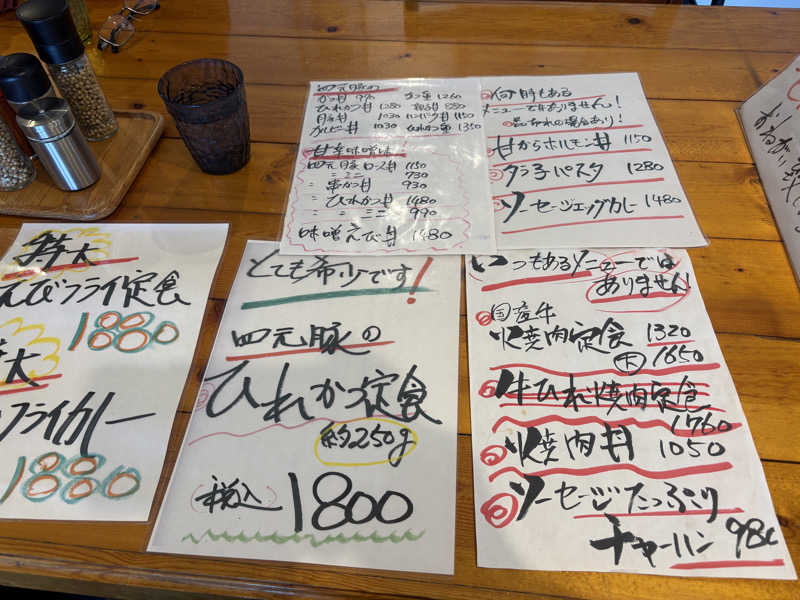 四元豚の
カツ丼 970 カツ重 1260
ひれカツ丼 1280
1030
カルビー丼 1030 1350
甘辛味噌味!
四元豚 ロース丼 1150
〃 ミニ 730
〃 串かつ丼 930
〃 ひれかつ丼 1480
〃 〃 ミニ 990
味噌えび丼 1480
何時もある
メニューではありません!
品切れの場合あり!
甘からホルモン丼 1150
タラ子パスタ 1280
ソーセージエッグカレー 1480
特大
えびフライ定食
1880
特大
フライカレー
1880
とても希少です!
四元豚の
ひれかつ定食
約250g
(税込) 1800
いつもあるメニューでは
ありません!
国産牛
焼肉定食 1320
大 1650
牛ひれ焼肉定食
1760
焼肉丼 1050
ソーセージたっぷり
チャーハン 980